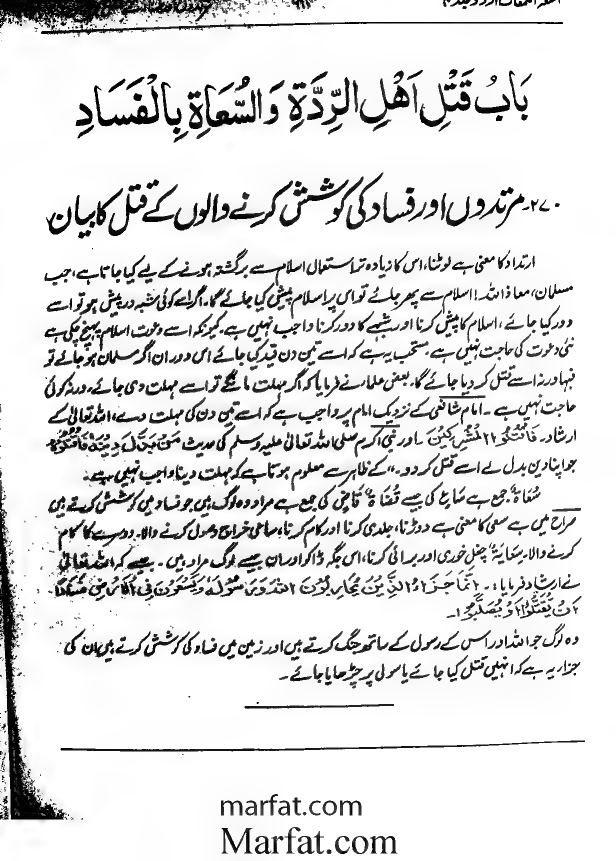 بَابُ قَتْلِ اَهْلِ الرِّدَّةِ وَالسُّعَاةِ بِالْفَسَادِ
۲۷۰۔ مرتدوں اور فساد کی کوشش کرنے والوں کے قتل کا بیان
ارتداد کا معنی ہے لوٹنا، اس کا زیادہ تر استعمال اسلام سے برگشتہ ہونے کے لیے کیا جاتا ہے، جب
مسلمان، معاذ اللہ! اسلام سے پھر جائے تو اس پر اسلام پیش کیا جائے گا۔ اگر اسے کوئی شبہ درپیش ہو تو اسے
دور کیا جائے، اسلام کا پیش کرنا اور شبہے کا دور کرنا واجب نہیں ہے۔ کیونکہ اسے دعوت اسلام پہنچ چکی ہے
نئی دعوت کی حاجت نہیں ہے۔ مستحب یہ ہے کہ اسے تین دن قید کیا جائے اس دوران اگر مسلمان ہو جائے تو
فبہا ورنہ اسے قتل کر دیا جائے گا۔ بعض علماء نے فرمایا کہ اگر مہلت مانگے تو اسے مہلت دی جائے، ورنہ کوئی
حاجت نہیں ہے۔ امام شافعی کے نزدیک امام پر واجب ہے کہ اسے تین دن کی مہلت دے، اللہ تعالٰی کے
ارشاد فَاقْتُلُوا الْمُشْرِکِیْنَ۔ اور نبی اکرم صلی اللہ تعالٰی علیہ وسلم کی حدیث مَنْ بَدَّلَ دِیْنَهٗ فَاقْتُلُوْهُ
جو اپنا دین بدل لے اسے قتل کر دو۔" کے ظاہر سے معلوم ہوتا ہے کہ مہلت دینا واجب نہیں ہے۔
سُعَاۃٌ جمع ہے سَاعٍ کی جیسے قُضَاۃٌ قَاضٍ کی جمع ہے مراد وہ لوگ ہیں جو فساد میں کوشش کرتے ہیں
صراح میں ہے سعی کا معنی ہے دوڑنا، جلدی کرنا اور کام کرنا، ساعی خراج وصول کرنے والا۔ دوسرے کا کام
کرنے والا۔ سِعَایَۃٌ چغل خوری اور برائی کرنا، اس جگہ ڈاکو اور ان جیسے لوگ مراد ہیں۔ جیسے کہ اللہ تعالٰی
نے ارشاد فرمایا:۔ اِنَّمَا جَزَاءُ الَّذِیْنَ یُحَارِبُوْنَ اللّٰهَ وَرَسُوْلَهٗ وَیَسْعَوْنَ فِی الْاَرْضِ فَسَادًا
اَنْ یُّقَتَّلُوْا اَوْ یُصَلَّبُوْا۔
وہ لوگ جو اللہ اور اس کے رسول کے ساتھ جنگ کرتے ہیں اور زمین میں فساد کی کوشش کرتے ہیں ان کی
جزا یہ ہے کہ انہیں قتل کیا جائے یا سولی پر چڑھایا جائے۔
marfat.com
Marfat.com